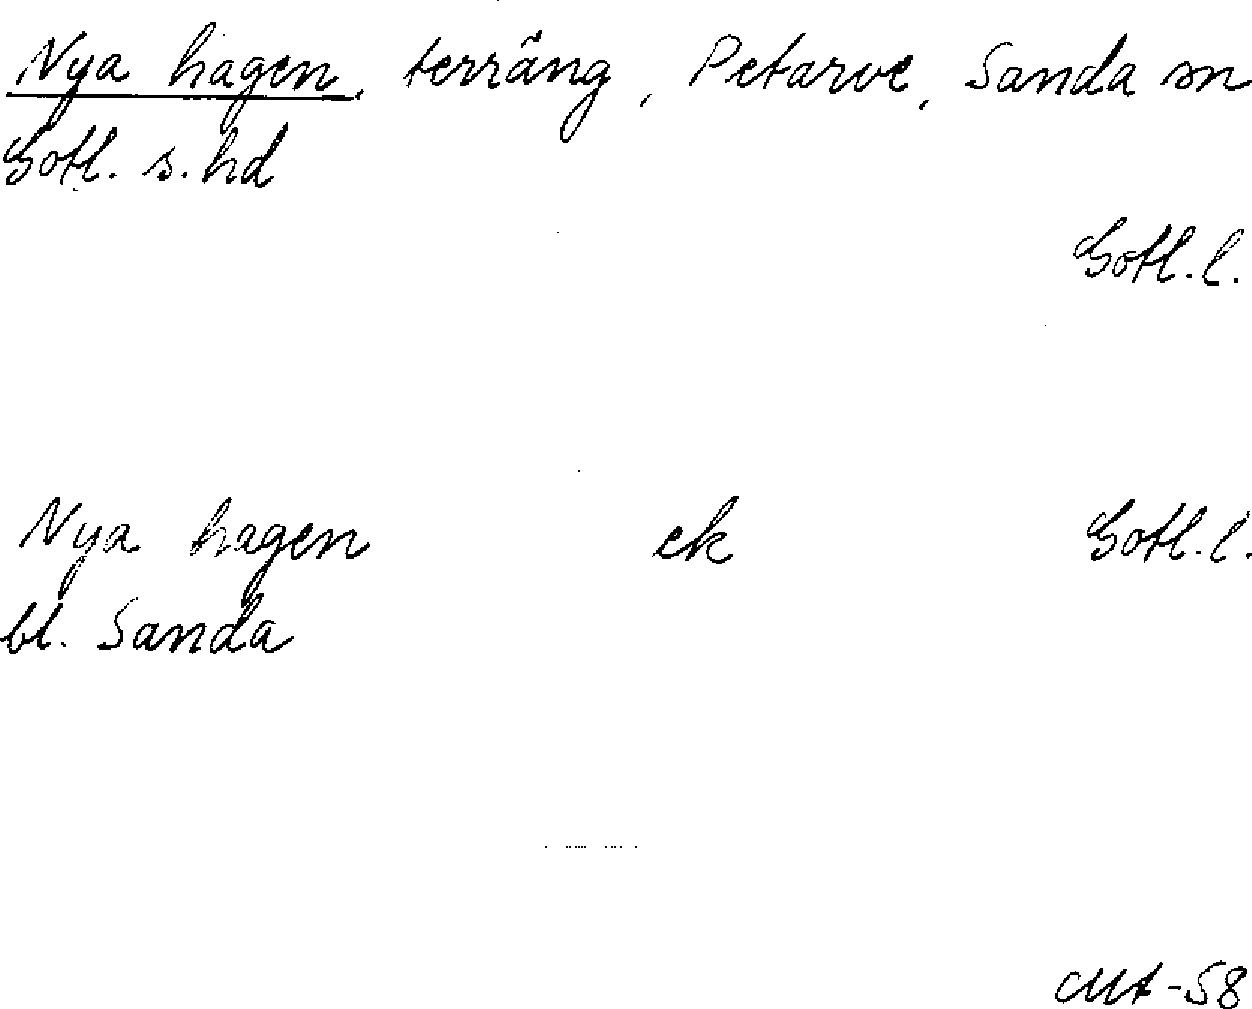 Nya hagen, terräng, Petarve, Sanda sn
Gotl. s. hd
Gotl. l.
Nya hagen ek Gotl. l.
bl. Sanda
-58